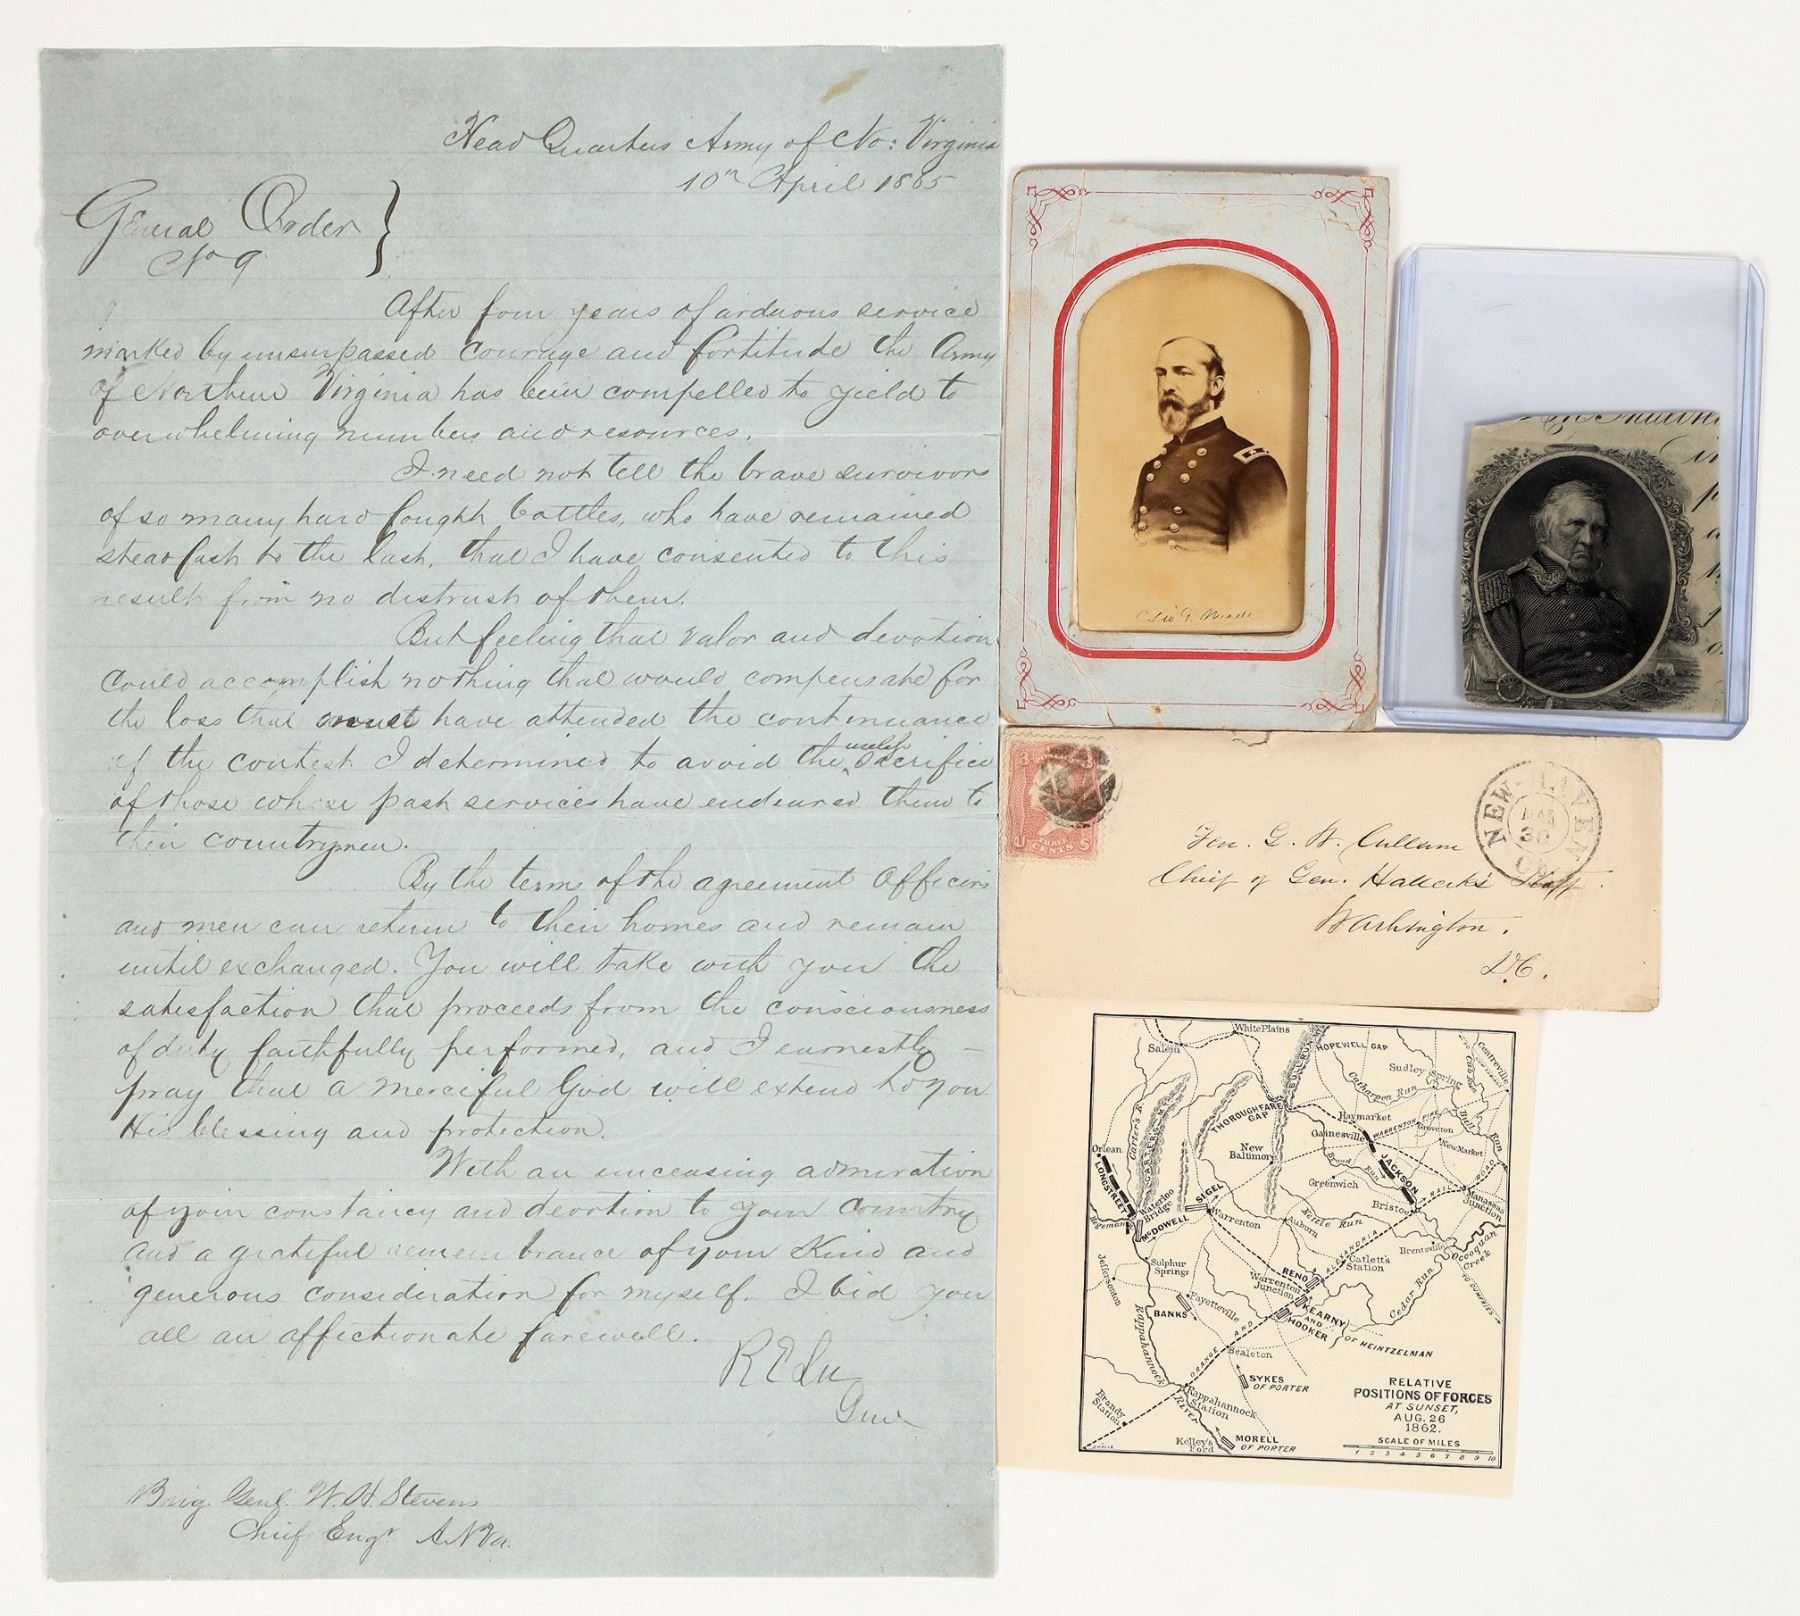 Head Quarters Army of No: Virginia
10th April 1865
General Order
No 9
After four years of arduous service
marked by unsurpassed courage and fortitude the Army
of Northern Virginia has been compelled to yield to
overwhelming numbers and resources.
I need not tell the brave survivors
of so many hard fought battles, who have remained
steadfast to the last, that I have consented to this
result from no distrust of them.
But feeling that valor and devotion
could accomplish nothing that would compensate for
the loss that must have attended the continuance
of the contest I determined to avoid the useless sacrifice
of those whose past services have endeared them to
their countrymen.
By the terms of the agreement Officers
and men can return to their homes and remain
until exchanged. You will take with you the
satisfaction that proceeds from the consciousness
of duty faithfully performed, and I earnestly
pray that a merciful God will extend to you
His blessing and protection.
With an unceasing admiration
of your constancy and devotion to your Country
and a grateful remembrance of your Kind and
generous consideration for myself. I bid you
all an affectionate farewell.
R E Lee
Genl
Brig. Genl. W. H. Stevens
Chief Engr. A.N.Va.
Geo G. Meade
3 3
U S
THREE
CENTS
NEW-HAVEN
MAR
30
CT
Gen. G. W. Cullum
Chief of Gen. Halleck's Staff.
Washington.
D.C.
White Plains
Salem
BULL RUN
HOPEWELL GAP
Sudley Spring
Centreville
Catharpen Run
Cub Run
Bull Run
Carter's R.
CARTER'S MT.
THOROUGHFARE
GAP
Haymarket
WARRENTON PIKE
Groveton
Gainesville
New Market
Orlean
New
Baltimore
Broad Run
JACKSON
LONGSTREET
Greenwich
RAIL ROAD
Manassas
Junction
Waterloo
Bridge
SIGEL
Bristoe
Hegeman
McDOWELL
Warrenton
Kettle Run
Auburn
Brentsville
Occoquan
Creek
ALEXANDRIA
Catlett's
Station
Jefferson
Sulphur
Springs
RENO
Warrenton
Junction
Cedar Run
TO DUMFRIES
BANKS
Fayetteville
KEARNY
AND
HOOKER
OF HEINTZELMAN
Rappahannock
River
ORANGE AND
Bealeton
SYKES
OF PORTER
Rappahannock
Station
Brandy
Station
Kelley's
Ford
MORELL
OF PORTER
RELATIVE
POSITIONS OF FORCES
AT SUNSET,
AUG. 26
1862.
SCALE OF MILES
1 2 3 4 5 6 7 8 9 10